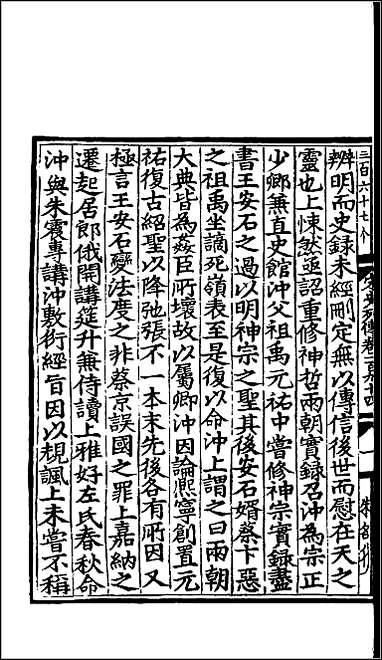 三百六十七个
宋史列傳卷一百九十四
一
辨明而史録未經刪定無以傳信後世而慰在天之
靈也上悚然亟詔重修神哲兩朝實録召沖為宗正
少卿兼直史館沖父祖禹元祐中嘗修神宗實録盡
書王安石之過以明神宗之聖其後安石婿蔡卞惡
之祖禹坐謫死嶺表至是復以命沖上謂之曰兩朝
大典皆為姦臣所壞故以屬卿沖因論熙寧創置元
祐復古紹聖以降弛張不一本末先後各有所因又
極言王安石變法度之非蔡京誤國之罪上嘉納之
遷起居郎俄開講筵升兼侍讀上雅好左氏春秋命
沖與朱震專講沖敷衍經旨因以規諷上未嘗不稱